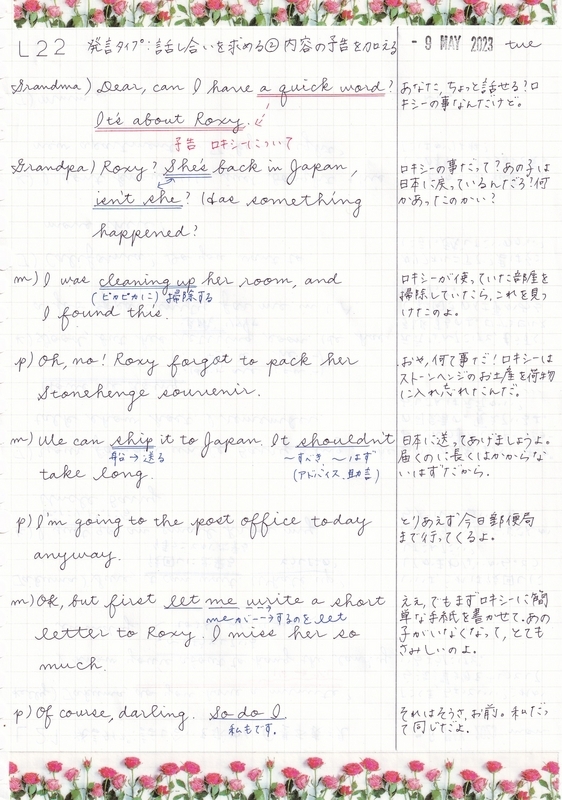 L22 発言タイプ:話し合いを求める② 内容の予告を加える - 9 MAY 2023 tue
Grandma) Dear, can I have a quick word?
It's about Roxy.
予告 ロキシーについて
あなた、ちょっと話せる?ロ
キシーの事なんだけど。
Grandpa) Roxy? She's back in Japan,
isn't she? Has something
happened?
ロキシーの事だって?あの子は
日本に戻っているんだろ?何
かあったのかい?
m) I was cleaning up her room, and
(ピカピカに) 掃除する
I found this.
ロキシーが使っていた部屋を
掃除していたら、これを見つ
けたのよ。
p) Oh, no! Roxy forgot to pack her
Stonehenge souvenir.
おや、何て事だ!ロキシーは
ストーンヘンジのお土産を荷物
に入れ忘れたんだ。
m) We can ship it to Japan. It shouldn't
船→送る ~すべき ~はず
take long. (アドバイス.助言)
日本に送ってあげましょうよ。
届くのに長くはかからな
いはずだから。
p) I'm going to the post office today
anyway.
とりあえず今日郵便局
まで行ってくるよ。
m) Ok, but first let me write a short
meが--→するのをlet
letter to Roxy. I miss her so
much.
ええ、でもまずロキシーに簡
単な手紙を書かせて。あの
子がいなくなって、とても
さみしいのよ。
p) Of course, darling. So do I
私もです。
それはそうさ、お前。私だっ
て同じだよ。